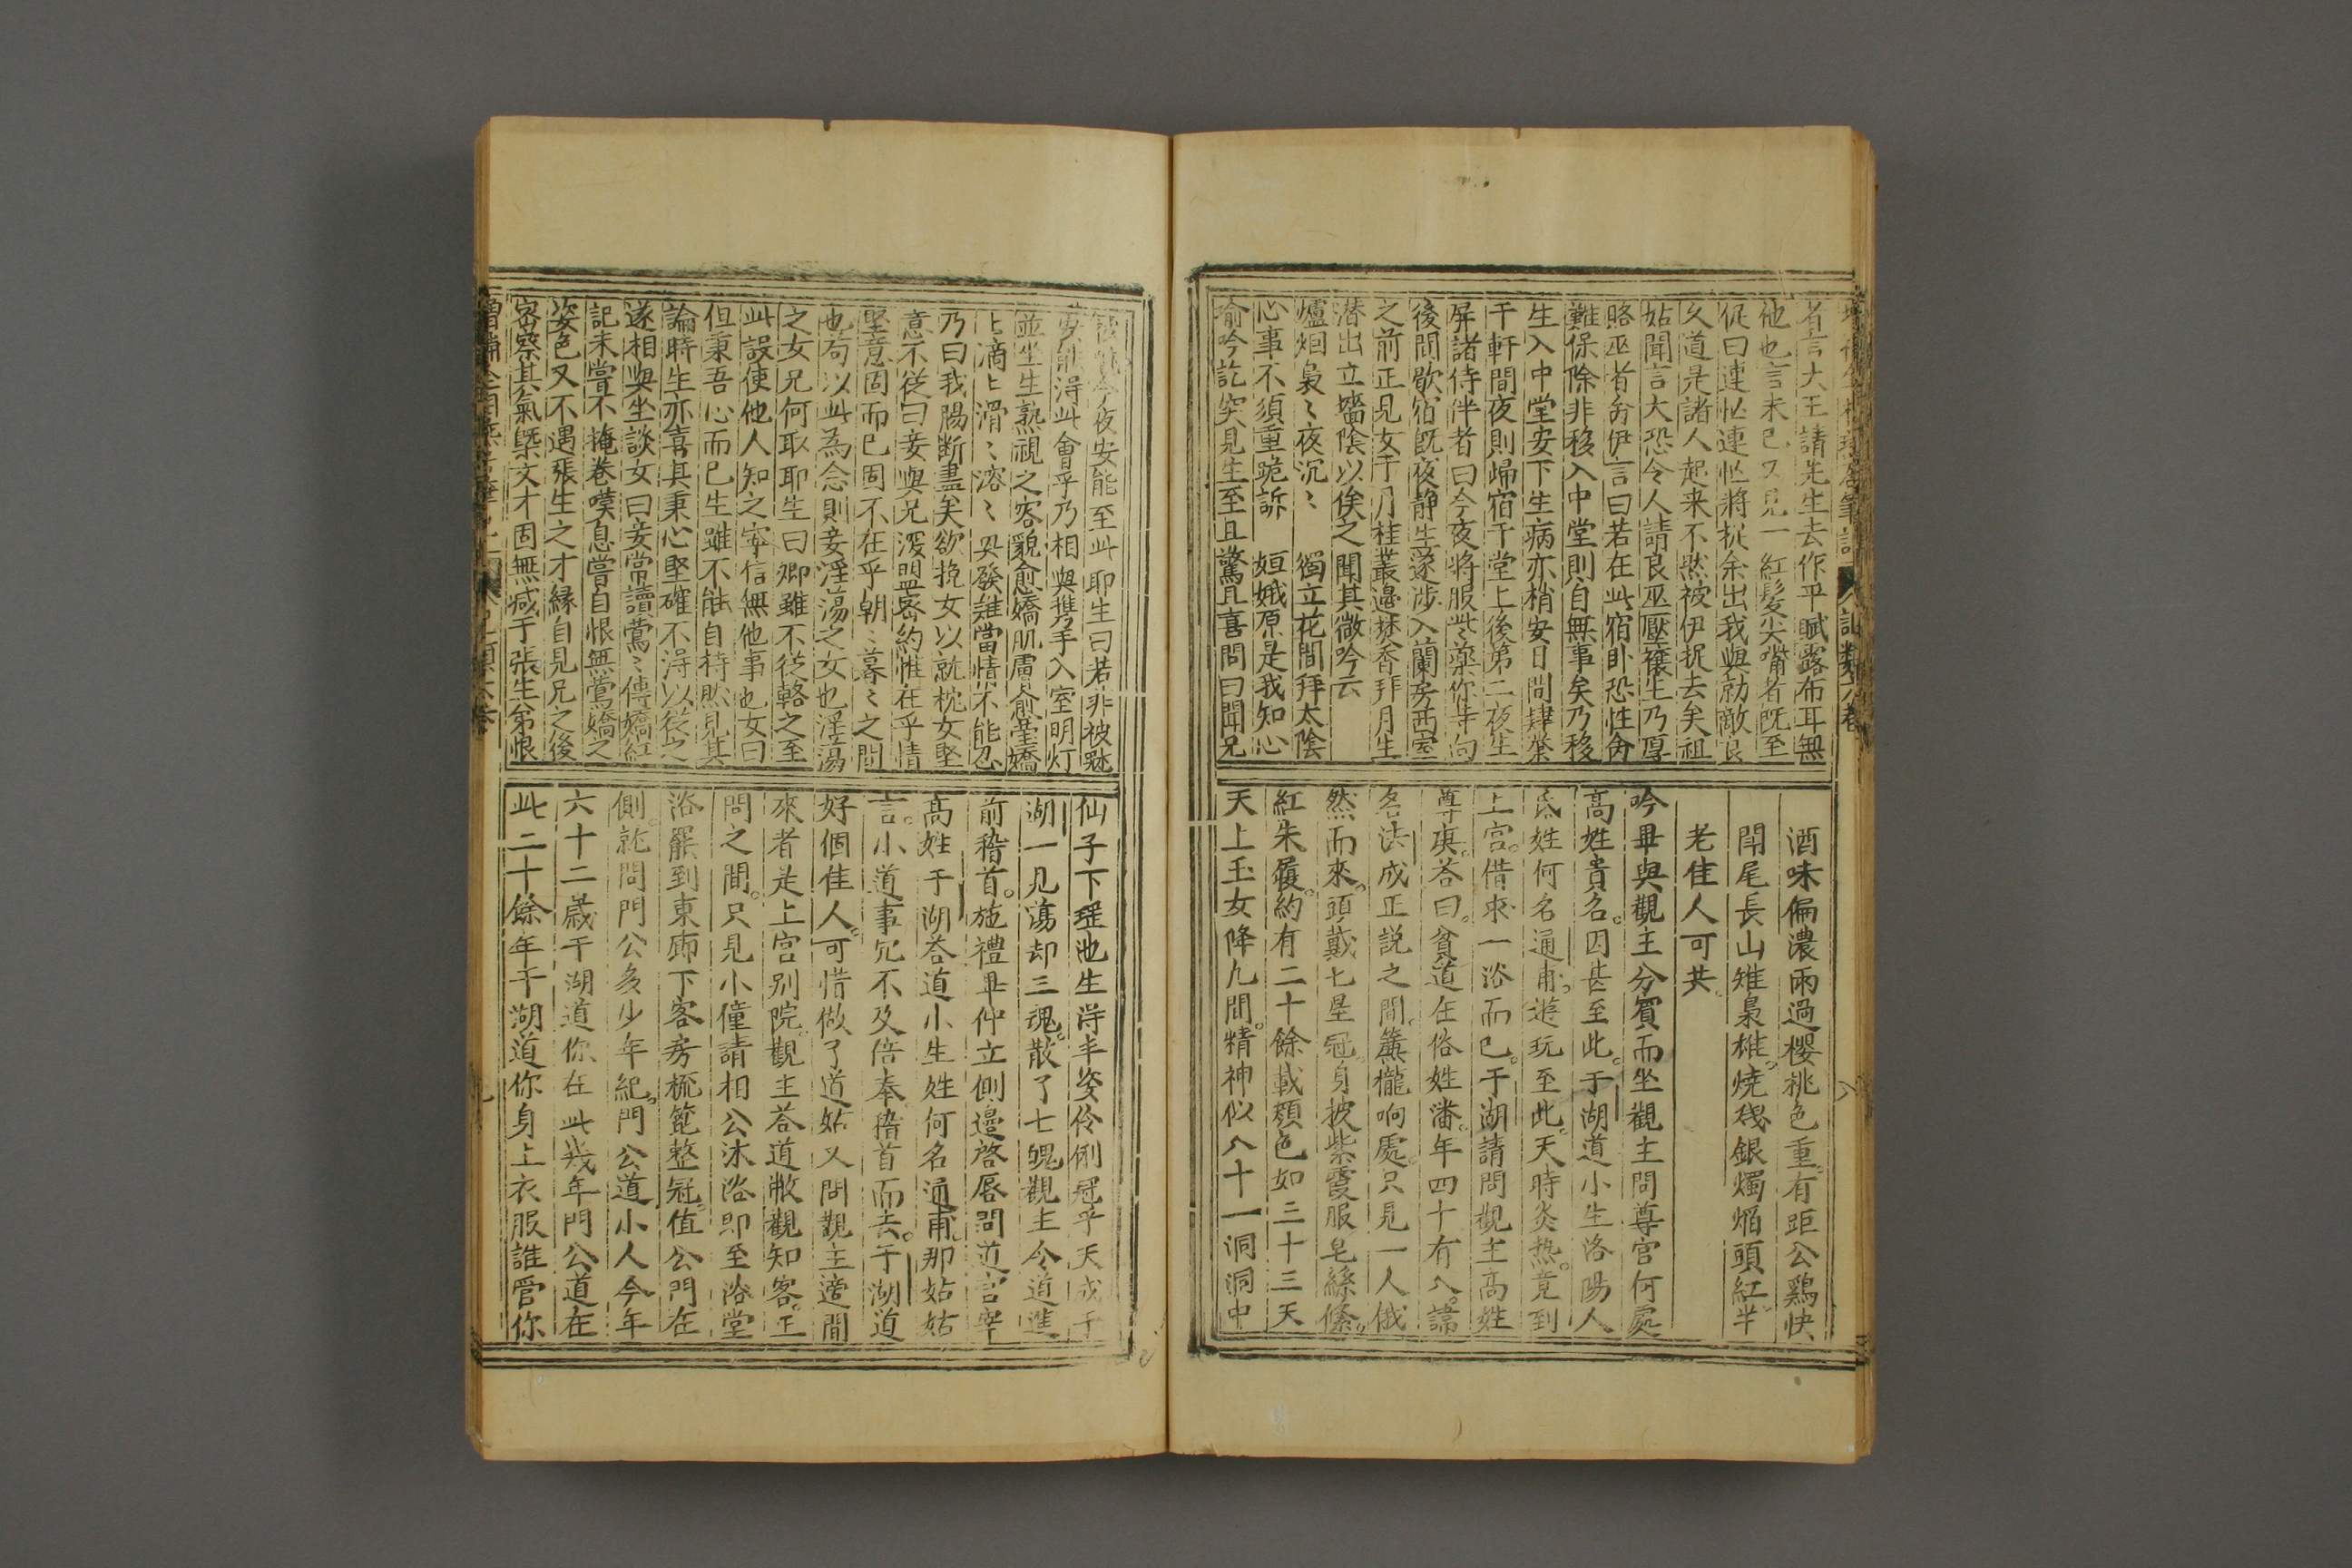 者言大王請先生去作平賊露布耳無
他也言未已又見一紅髮尖嘴者既至
促曰連忙連忙將扯余出我與勍敵良
久道是諸人起来不然被伊捉去矣祖
姑聞言大恐令人請良巫壓禳生乃厚
賂巫者翁伊言曰若在此宿卧恐性命
難保除非移入中堂則自無事矣乃移
生入中堂安下生病亦稍安日間肄業
于軒間夜則歸宿于堂上後第二夜生
屏諸侍伴者曰今夜將服此藥你等向
後間歇宿既夜静生遂涉入蘭房西室
之前正見女于月桂叢邊焚香拜月生
潜出立墻陰以俟之聞其微吟云
爐烟裊〻夜沉〻　獨立花間拜太陰
心事不須重跪訴　姮娥原是我知心
喻吟訖突見生至且驚且喜問曰聞兄
酒味偏濃雨過櫻桃色重有距公鷄快
閗尾長山雉梟雄燒殘銀燭焰頭紅半
老佳人可共
吟畢與觀主分賓而坐觀主問尊官何處
高姓貴名因甚至此于湖道小生洛陽人
氏姓何名通甫遊玩至此天時炎热竟到
上宫借求一浴而已于湖請問觀主高姓
尊庚荅曰貧道在俗姓潘年四十有八諱
名法成正説之間簾櫳响處只見一人俄
然而來頭戴七星冠身披紫霞服皂絲絛
紅朱履約有二十餘載顏色如三十三天
天上玉女降九間精神似八十一洞洞中
寢病今夜安能至此耶生曰若非被魅
安能淂此會乎乃相與携手入室明灯
並坐生熟視之容貌愈嬌肌膚愈瑩嬌
上滴上滑〻溶〻興發難當情不能忍
乃曰我腸断盡矣欲挽女以就枕女堅
意不從曰妾與兄深盟密約惟在乎情
堅意固而已固不在乎朝〻暮〻之間
也苟以此為念則妾淫蕩之女也淫蕩
之女兄何取耶生曰卿雖不從輅之至
此設使他人知之寧信無他事也女曰
但秉吾心而已生雖不能自持然見其
論時生亦喜其秉心堅確不淂以從之
遂相與坐談女曰妾常讀鶯〻傳嬌紅
記未嘗不掩卷嘆息嘗自恨無鶯嬌之
姿色又不遇張生之才緣自見兄之後
密察其氣槩文才固無减于張生弟恨
仙子下瑶池生淂丰姿伶俐冠乎天戌于
湖一見蕩却三魂散了七魄觀主令道進
前稽首施禮畢仲立側邊啓唇問道官宰
高姓于湖荅道小生姓何名通甫那姑姑
言小道事冗不及倍奉稽首而去于湖道
好個佳人可惜做了道姑又問觀主適間
來者是上宫别院觀主荅道敝觀知客正
問之間只見小僮請相公沐浴即至浴堂
浴罷到東廊下客房梳篦整冠值公門在
側就問門公多少年紀門公道小人今年
六十二歲于湖道你在此幾年門公道在
此二十餘年于湖道你身上衣服誰管你